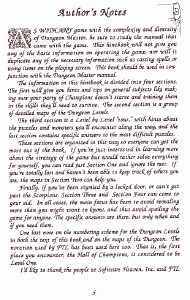 Author's Notes
AS WITH ANY game with the complexity and diversity
of Dungeon Master, be sure to study the manual that
came with the game. This hintbook will not give you
any of the basic information on operating the game, nor will it
duplicate any of the necessary information such as casting spells or
using items on the playing screen. This book should be used in con-
junction with the Dungeon Master manual.
The information in this hintbook is divided into four sections.
The first will give you hints and tips on general subjects like mak-
ing sure your party of Champions doesn't starve and training them
in the skills they'll need to survive. The second section is a group
of detailed maps of the Dungeon Levels.
The third section is a Level by Level "tour," with hints about
the puzzles and monsters you'll encounter along the way, and the
last section contains specific answers to the most difficult puzzles.
These sections are organized in this way so everyone can get the
most out of the book. If you're just interested in learning more
about the strategy of the game but would rather solve everything
for yourself, you can read just Section One and ignore the rest. If
you're totally lost and haven't been able to keep track of where you
are, the maps in Section Two can help you.
Finally, if you've been stymied by a locked door, or can't get
past the Scorpions, Section Three and Section Four can come to
your aid. In all cases, the main focus has been to avoid revealing
more than you might want to know, and thus avoid spoiling the
game for anyone. The specific answers are there, but only when and
if you need them.
One last note on the numbering scheme for the Dungeon Levels
in both the text of this book and on the maps of the Dungeon. The
convention used by FTL has been used here too. That is, the first
place you encounter, the Hall of Champions, is considered to be
Level One.
I'd like to thank the people at Software Heaven, Inc. and FTL